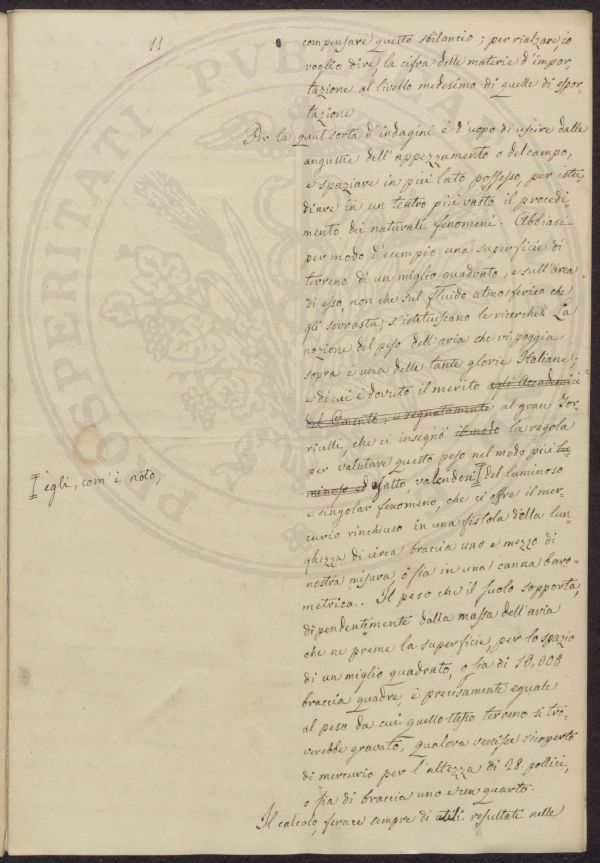 11
compensare questo sbilancio; per rialzare, io
voglio dire, la cifra delle materie d'impor-
tazione al livello medesimo di quelle di espor-
tazione
Per la qual sorta d'indagini è d'uopo di uscire dalle
angustie dell'appezzamento o del campo,
e spaziare in più lato possesso, per istu-
diare in un teatro più vasto il procedi-
mento dei naturali fenomeni. Abbiasi
per modo d'esempio una superficie di
terreno di un miglio quadrato, e sull'area
di esso, non che sul fluido atmosferico che
gli sovrasta, s'istituiscano le ricerche. La
nozione del peso dell'aria che vi poggia
sopra è una delle tante glorie Italiane;
e di cui è dovuto il merito agli Accademici
del Cimento, e segnatamente al gran Tor-
ricelli, che ci insegnò il modo la regola
per valutare questo peso nel modo più lu-
minoso ed esatto, valendosi del luminoso
egli, com'è noto,
e singolar fenomeno, che ci offre il mer-
curio rinchiuso in una fistola della lun-
ghezza di circa braccia uno e mezzo di
nostra misura o sia in una canna baro-
metrica. Il peso che il suolo sopporta,
dipendentemente dalla massa dell'aria
che ne preme la superficie, per lo spazio
di un miglio quadrato, o sia di
braccia quadre, è precisamente eguale
al peso da cui quello stesso terreno si tro-
verebbe gravato, qualora venisse ricoperto
di mercurio per l'altezza di 28. pollici,
o sia di braccia uno e un quarto.
Il calcolo, ferace sempre di utili resultati nelle
PROSPERITATI PVBLICAE